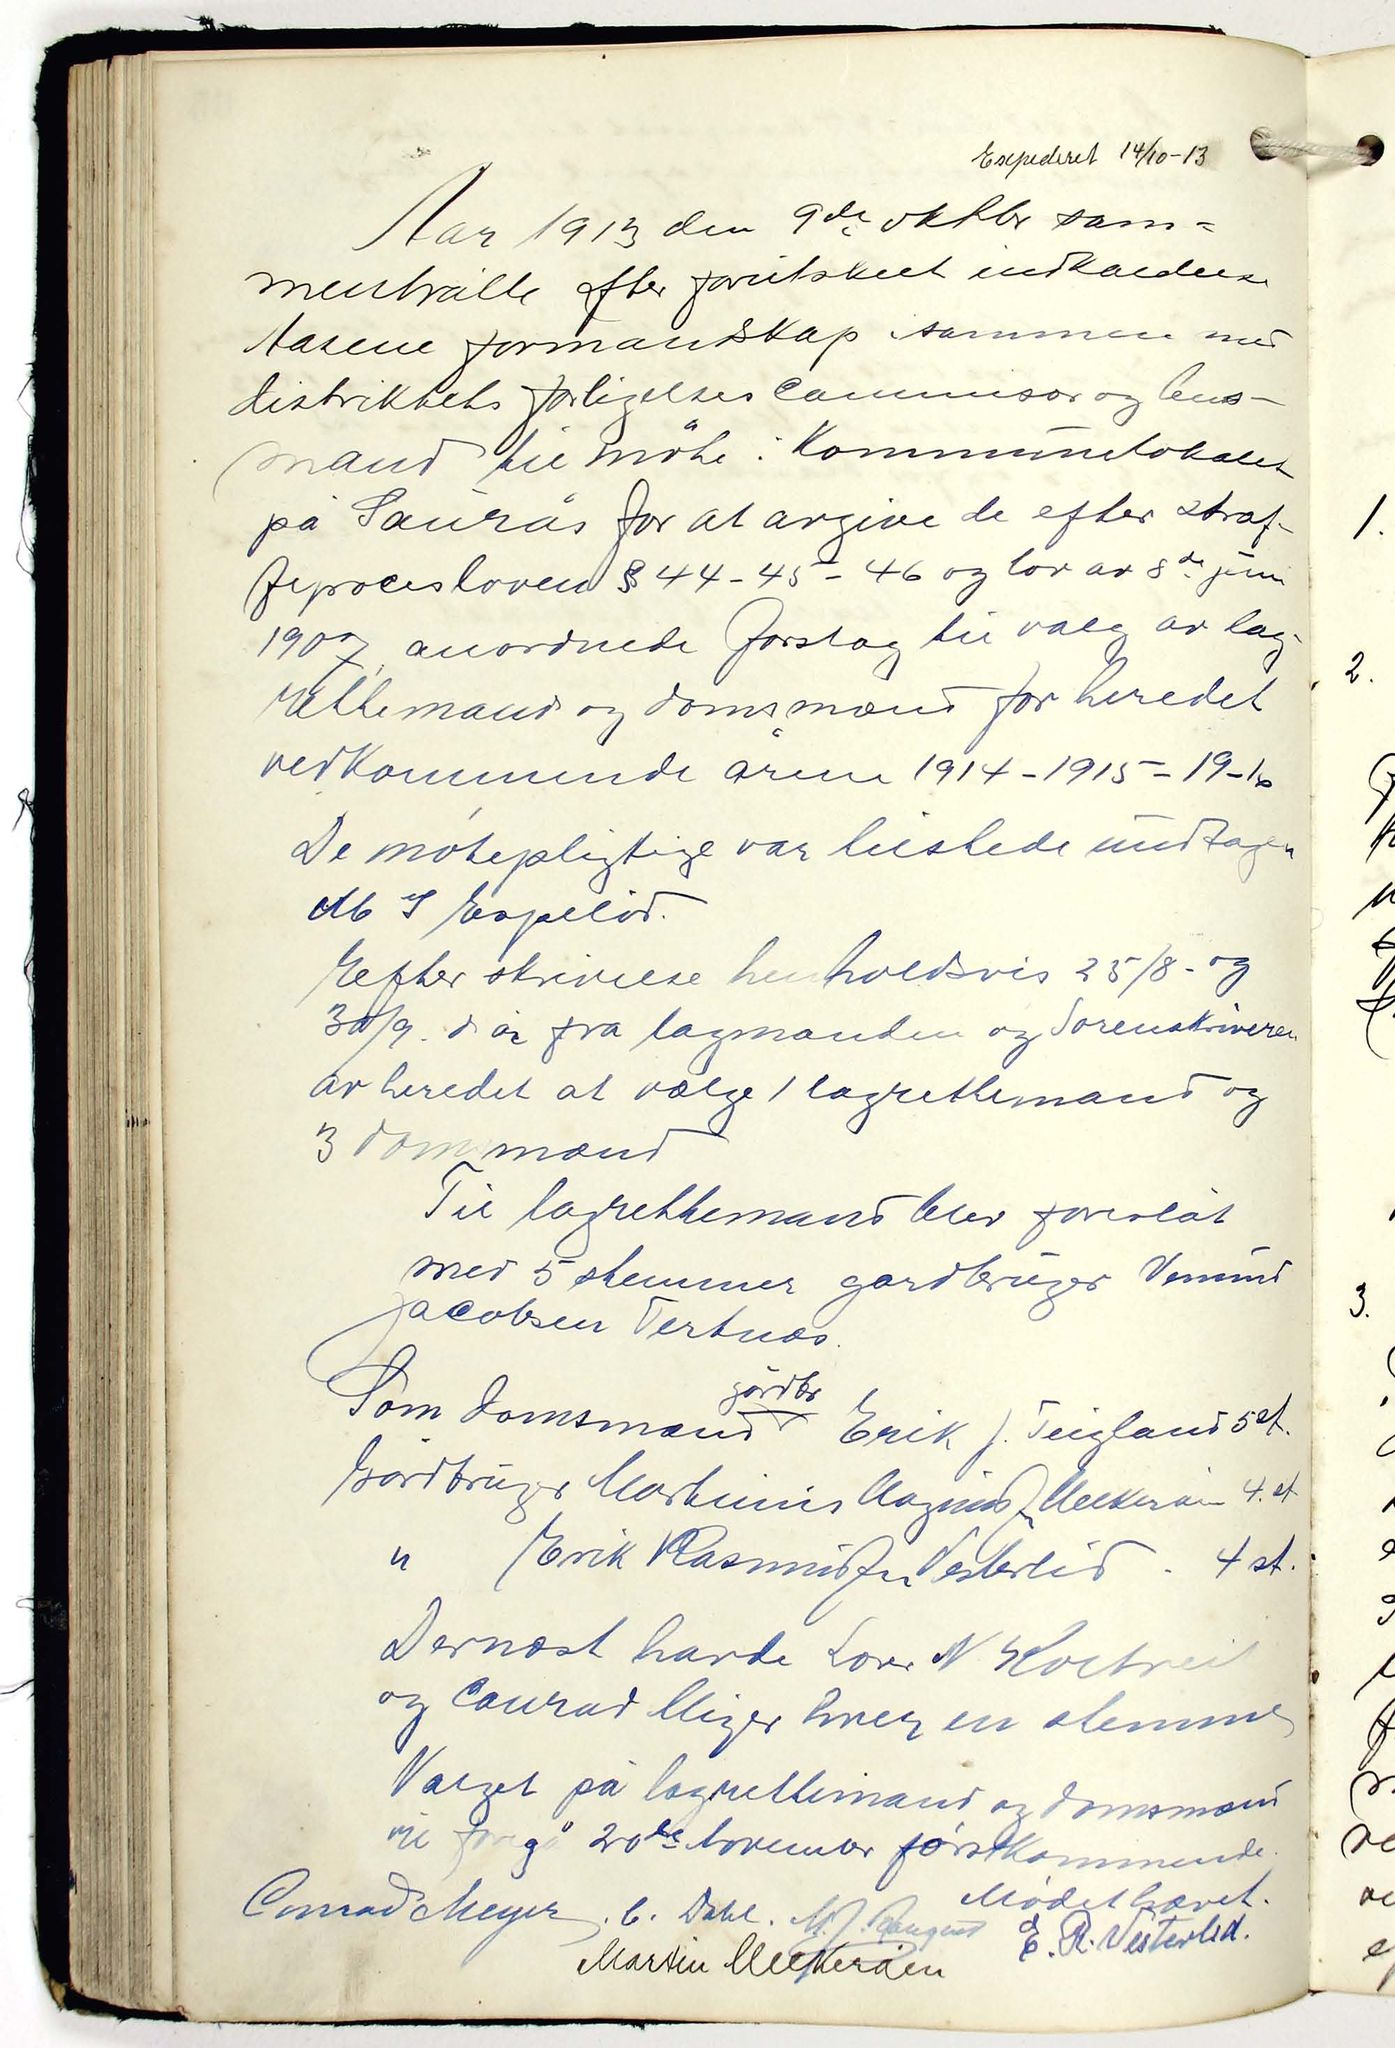 Expederet 14/10-13
Aar 1913 den 9de oktbr sam-
mentraatte efter forutskeet indkaldelse
Aasene formandskap sammen med
distriktets forligelses Commisær og lens-
mand til møte i Kommunelokalet
på Saurås for at avgive de efter straf-
feprocesloven § 44-45-46 og lov av 8de juni
1907 anordnede forslag til valg av lag-
rettemand og domsmænd for heredet
vedkommende årene 1914-1915-19-16
De møtepligtige var tilstede undtagen
M S Espelid.
Efter skrivelse henholdsvis 25/8- og
30/9. d år fra lagmanden og Sorenskriveren
av heredet at vælge 1 lagrettemand og
3 dommænd
Til lagrettemand blev foreslåt
med 5 stemmer gardbruger Vemund
Jacobsen Tertnæs.
gårdbr
Som domsmænd Erik J. Teigland 5 st.
Gårdbruger Martinus Magnus 4. st
" Erik Rasmusfn Vesterlid. 4 st.
Dernæst havde N
og Conrad Meyer hver en stemme
Valget på lagrettemand og domsmænd
vil foregå 20de November førstkommende.
Mødet hævet.
Conrad Meyer. C. Dahl. M. J. E. R. Vesterlid.
Martin
1.
2.
3.